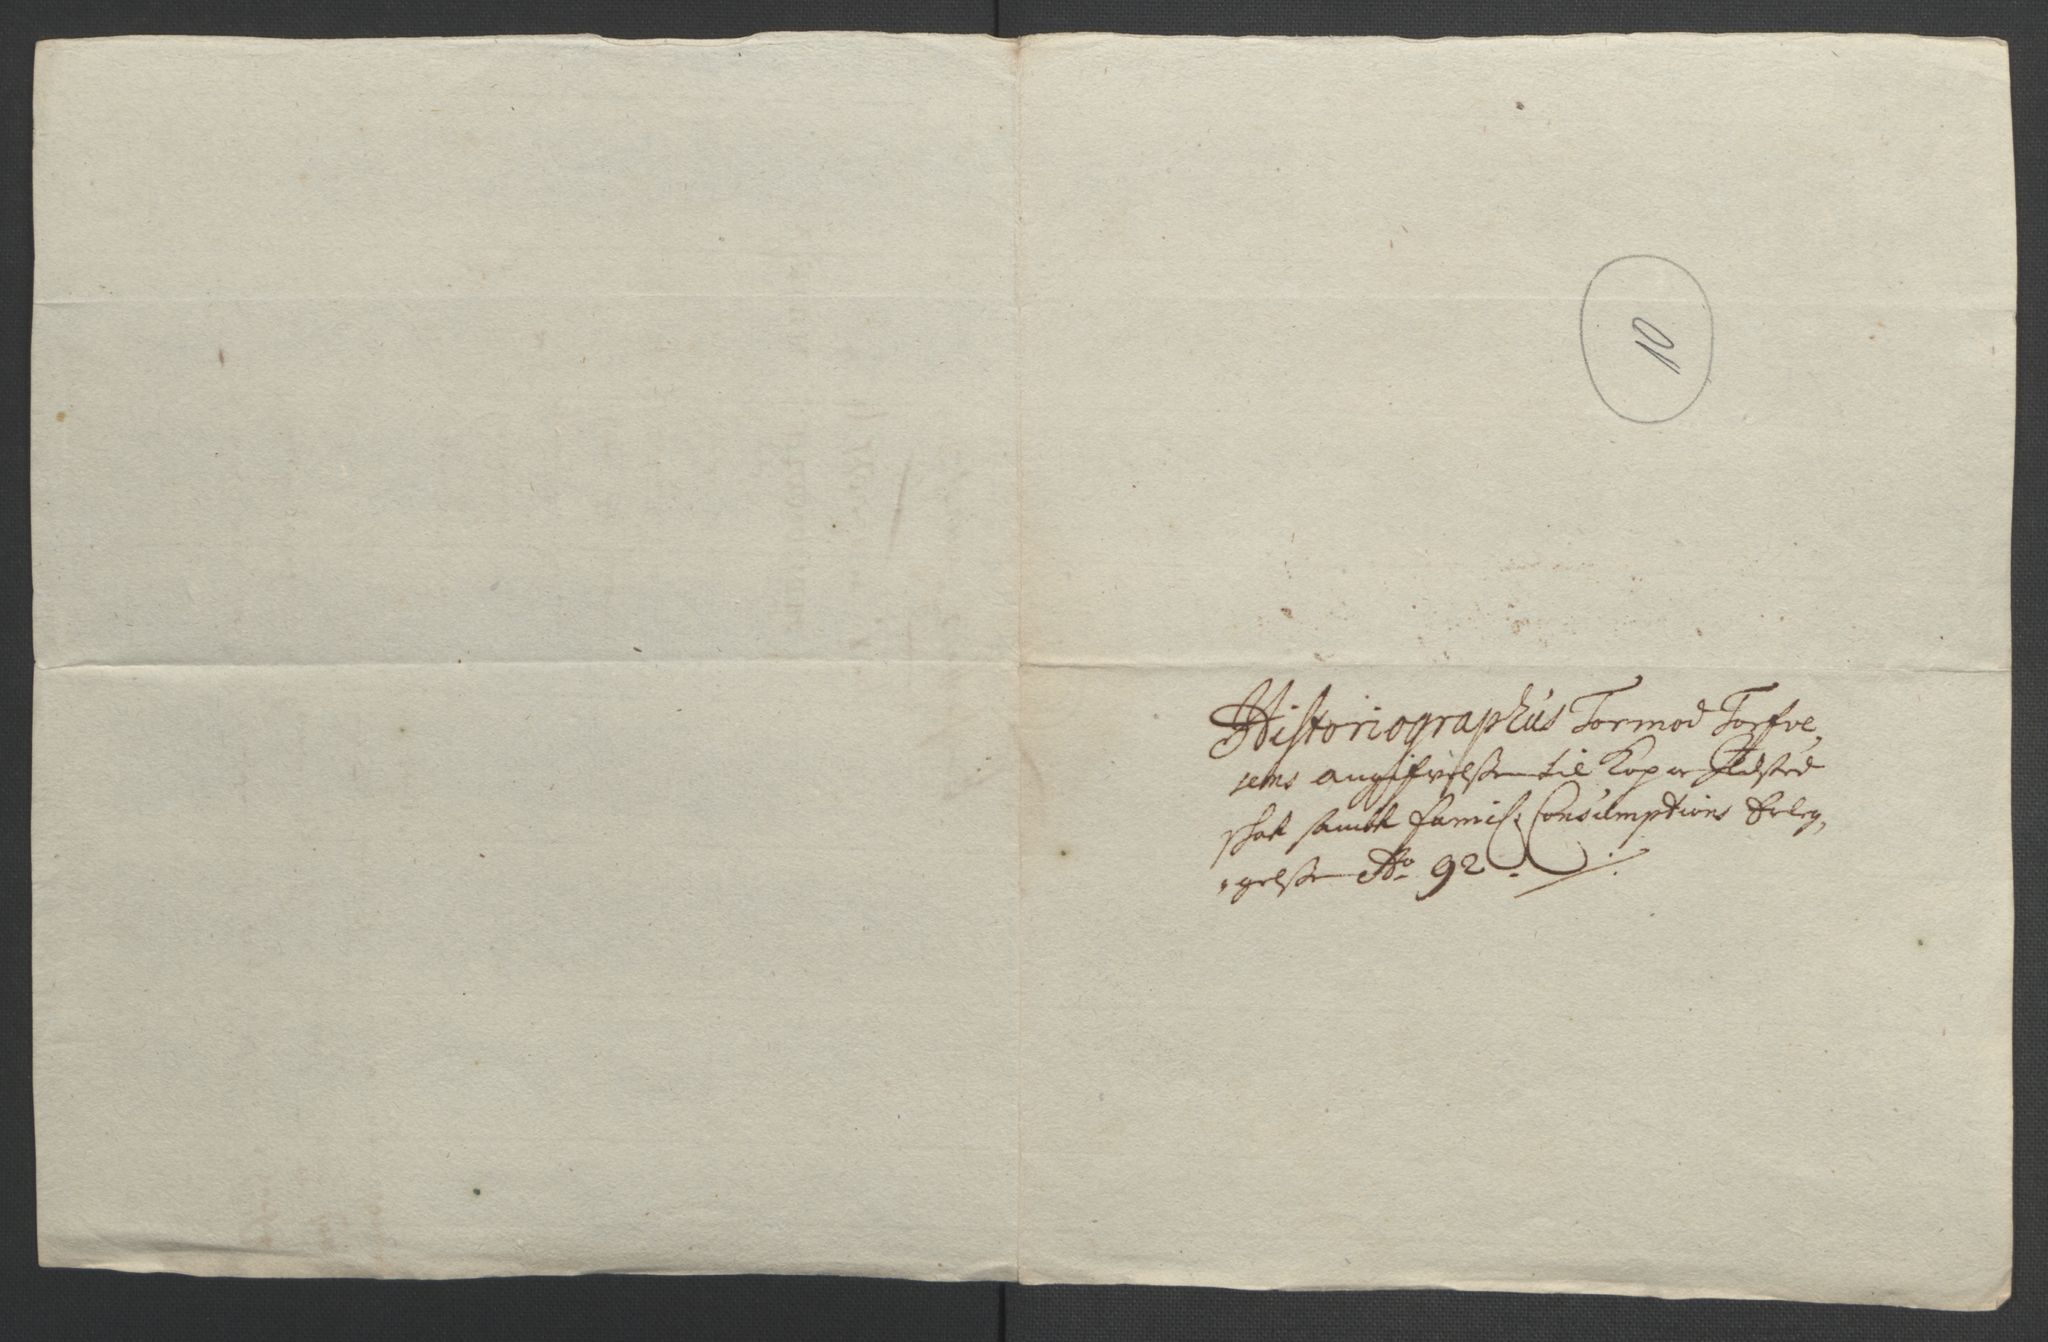 10
Historiographus Tormod Torfve,
sens angifvelse til Kop oc Ildsted
skat sambt famil: Consumptions Erleg,
gelse Ao 92